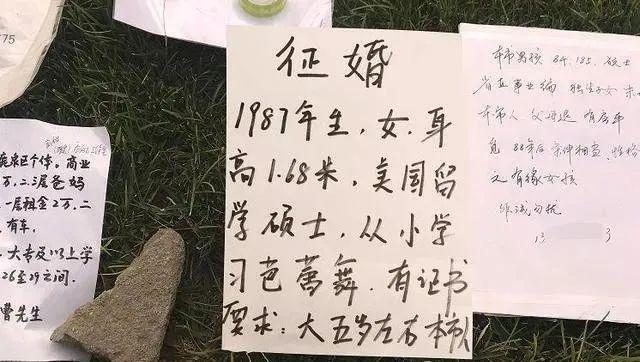 775
鹿泉区个体。商业
万,二层爸妈
一层租金2万,二
有车。
大专及以上学
26至29之间.
曹先生
征婚
1987年生,女,身
高1.68米,美国留
学硕士,从小学
习芭蕾舞.有证书
要求:大五岁左右本市人
本市男孩 84, 185, 硕士
省直事业编 独生子女 未
本市人 父母退 有房车
觅 88年后 条件相宜、性格
元有缘女孩
非诚勿扰
13 3